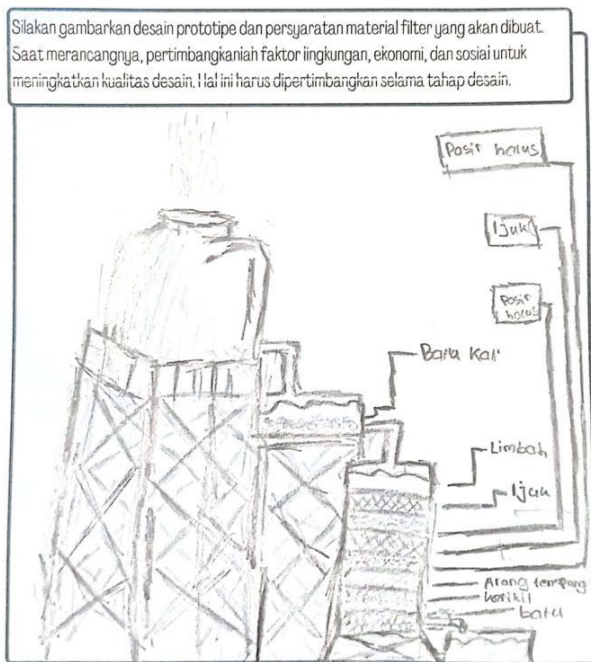 Silakan gambarkan desain prototipe dan persyaratan material filter yang akan dibuat.
Saat merancangnya, pertimbangkaniah faktor iingkungan, ekonomi, dan sosiai untuk
meningkatkan kuaiitas desain. Hal ini harus dipertimbangkan selama tahap desain.
Pasir halus
Ijuk
Pasir
halus
Batu Kali
Limbah
Ijuk
Arang tempang
kerikil
batu